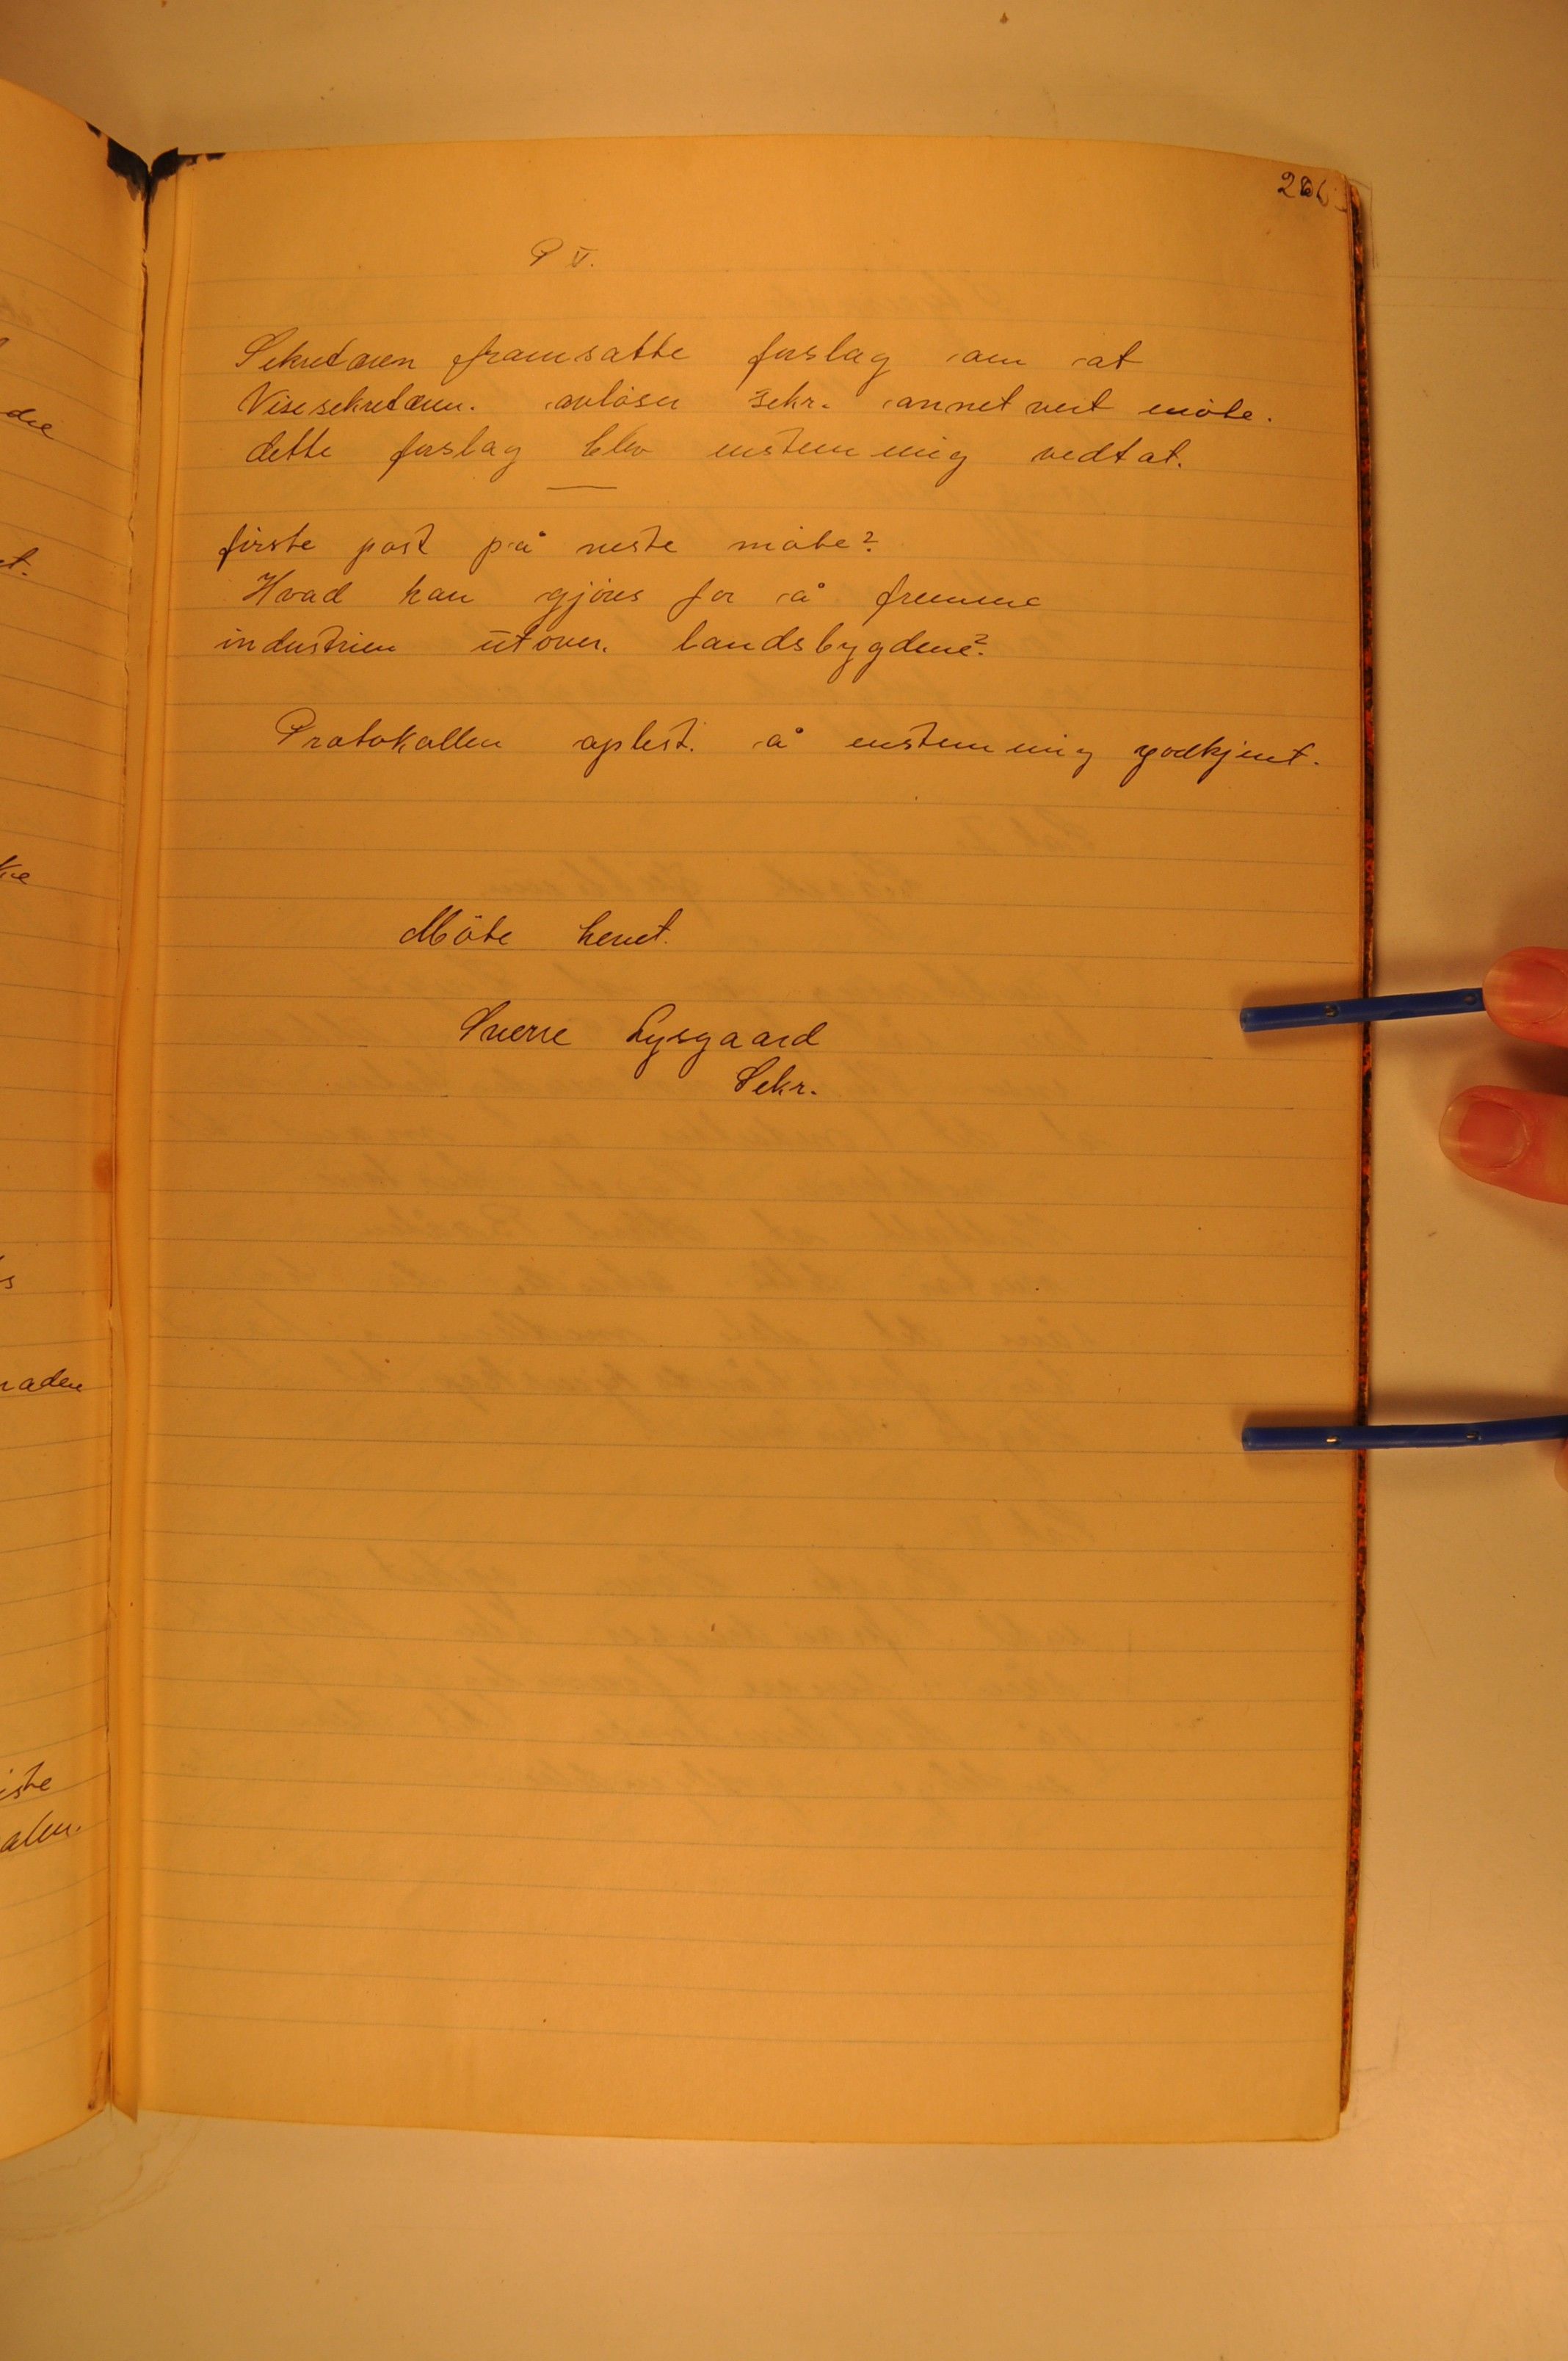 P V.
Sekretæren framsatte forslag om at
Visesekretæren. avløser sekr. annet vert møte.
dette forslag blev enstemmig vedtat.
første post på neste møte?
Hvad kan gjøres for å fremme
industrien utover. landsbygdene?
Protokollen oplest. å enstemmig godkjent.
Møte hevet.
Sverre Lysgaard
Sekr.